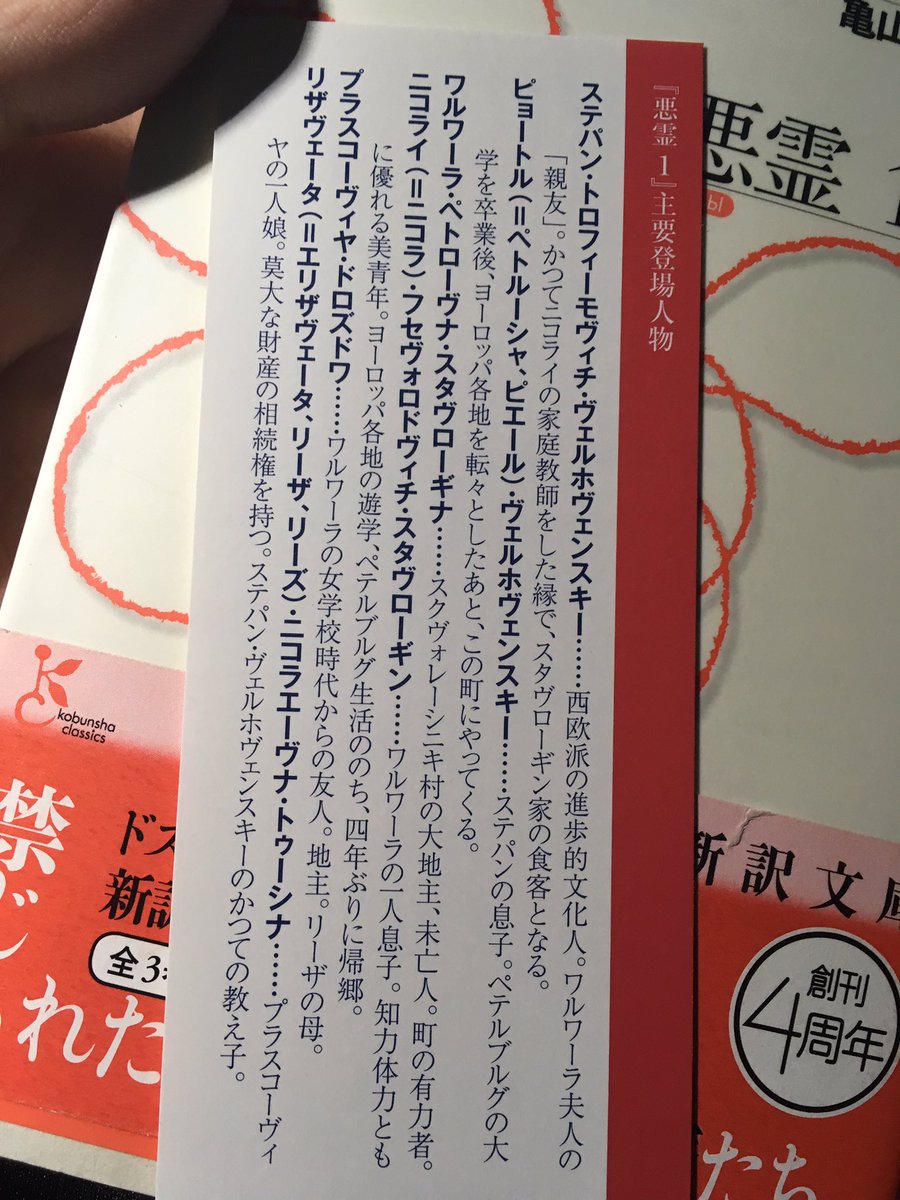 『悪霊 1』主要登場人物
ステパン・トロフィーモヴィチ・ヴェルホヴェンスキー……西欧派の進歩的文化人。ワルワーラ夫人の
「親友」。かつてニコライの家庭教師をした縁で、スタヴローギン家の食客となる。
ピョートル（＝ペトルーシャ、ピエール）・ヴェルホヴェンスキー……ステパンの息子。ペテルブルグの大
学を卒業後、ヨーロッパ各地を転々としたあと、この町にやってくる。
ワルワーラ・ペトローヴナ・スタヴローギナ……スクヴォレーシニキ村の大地主、未亡人。町の有力者。
ニコライ（＝ニコラ）・フセヴォロドヴィチ・スタヴローギン……ワルワーラの一人息子。知力体力とも
に優れる美青年。ヨーロッパ各地の遊学、ペテルブルグ生活ののち、四年ぶりに帰郷。
プラスコーヴィヤ・ドロズドワ……ワルワーラの女学校時代からの友人。地主。リーザの母。
リザヴェータ（＝エリザヴェータ、リーザ、リーズ）・ニコラエーヴナ・トゥーシナ……プラスコーヴィ
ヤの一人娘。莫大な財産の相続権を持つ。ステパン・ヴェルホヴェンスキーのかつての教え子。
亀山
悪霊
kobunsha
classics
新訳文庫
創刊
4周年
ドス
新訳
全3
禁じ
られた
たち